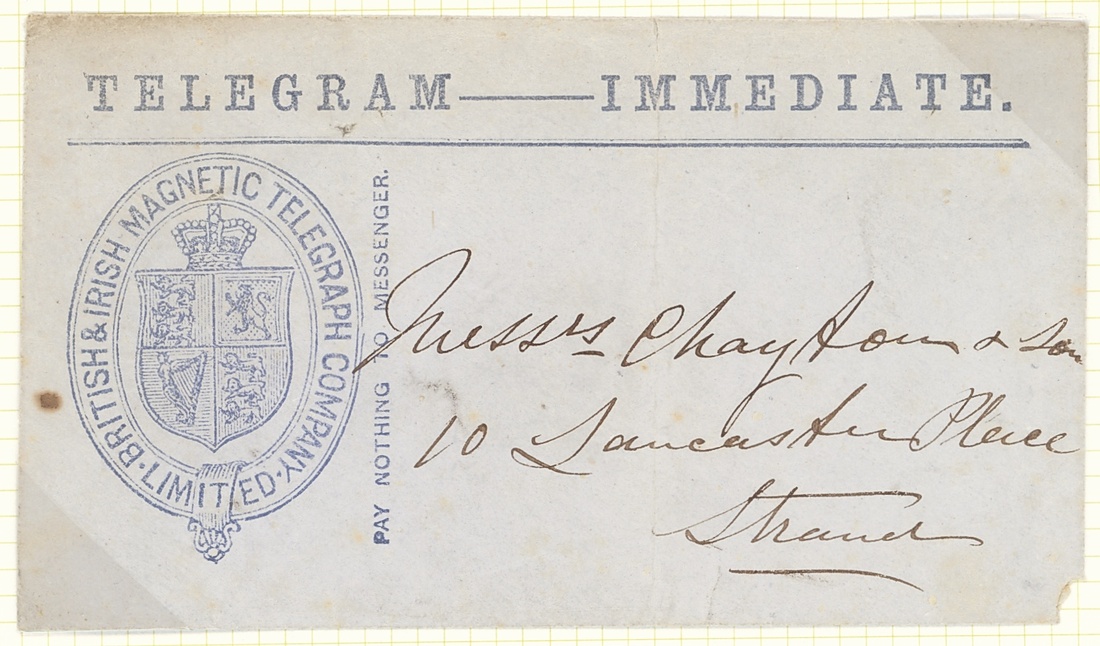 TELEGRAM—IMMEDIATE.
BRITISH & IRISH MAGNETIC TELEGRAPH COMPANY.
LIMITED.
PAY NOTHING TO MESSENGER.
Messrs Chayton & Son
10 Lancaster Place
Strand